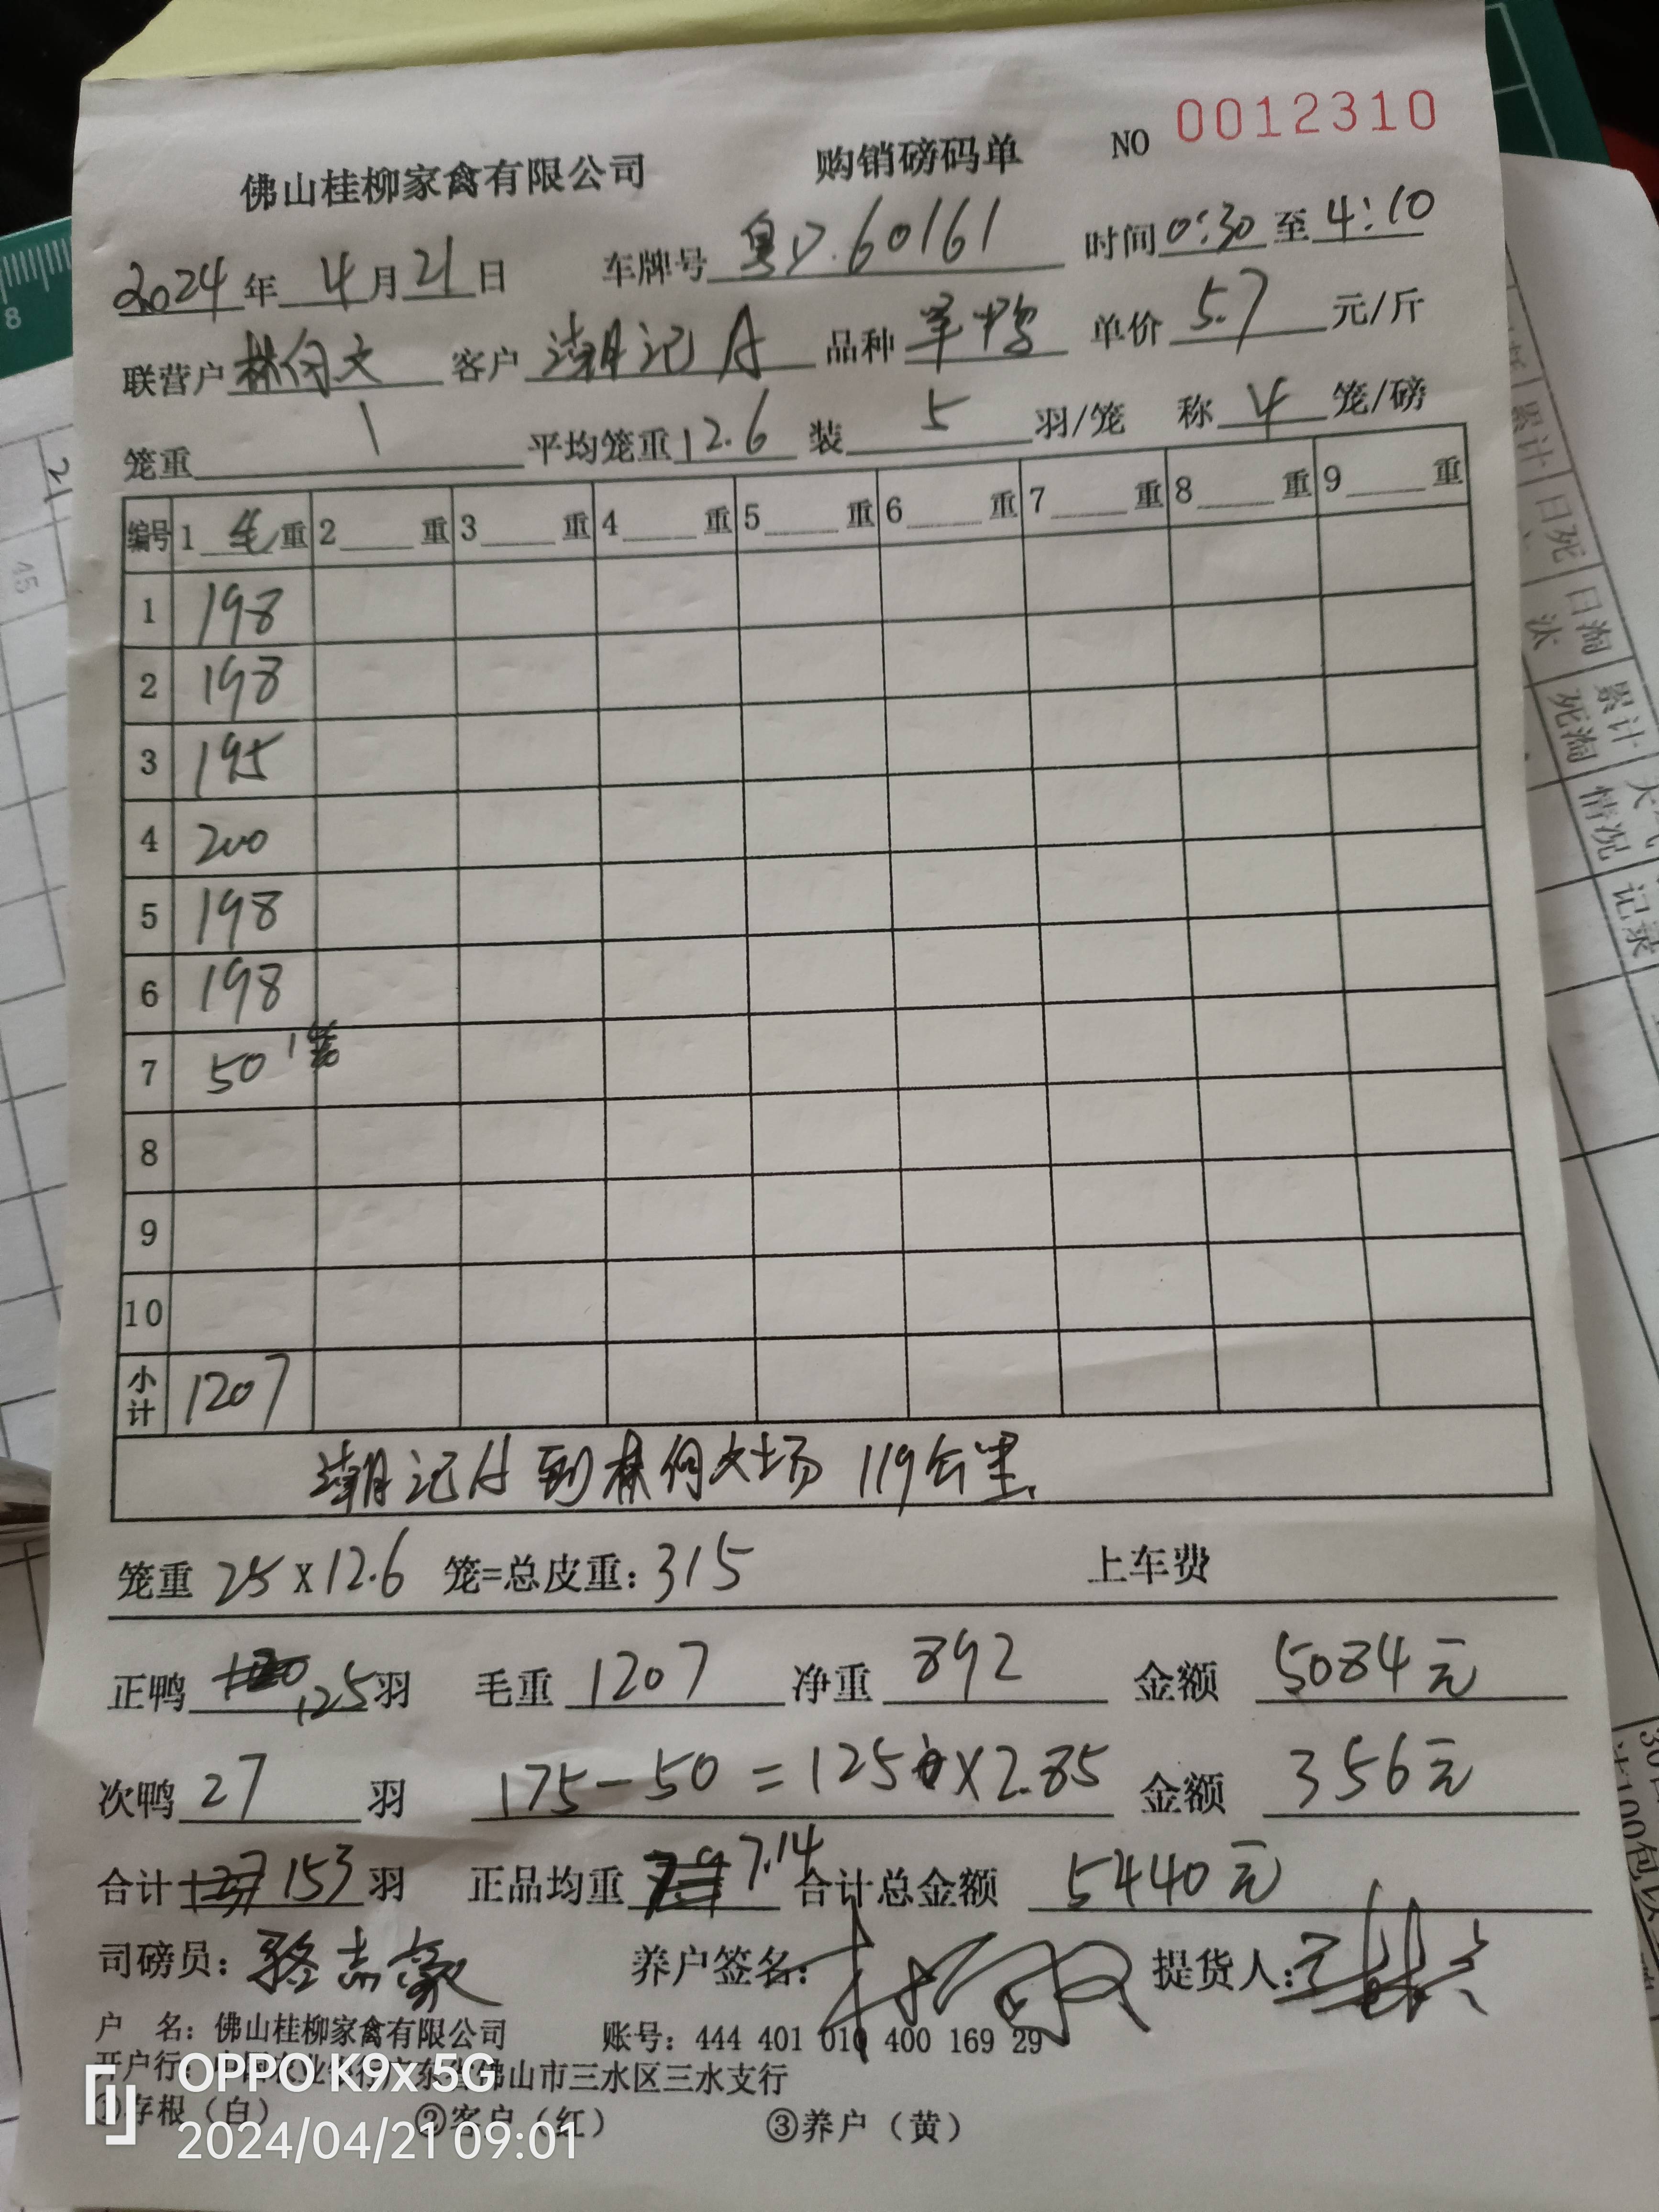 佛山桂柳家禽有限公司 购销磅码单 NO 0012310
2024年 4月21日 车牌号 粤Y.60161 时间0:30至4:10
联营户林向文 客户 潮记A 品种 单价 5.7 元/斤
笼重 1 平均笼重12.6 装 5 羽/笼 称 4 笼/磅
编号 1 毛 重 2 重 3 重 4 重 5 重 6 重 7 重 8 重 9 重
1 198
2 198
3 195
4 200
5 198
6 198
7 50 1笼
8
9
10
小计 1207
潮记A到林向文场 119公里
笼重 25 x 12.6 笼=总皮重: 315 上车费
正鸭 125羽 毛重 1207 净重 892 金额 5084元
次鸭 27 羽 175-50=125 x2.85 金额 356元
合计 153 羽 正品均重 7.14 合计总金额 5440元
司磅员: 骆志豪 养户签名: 提货人:
户 名: 佛山桂柳家禽有限公司 账号: 444 401 010 400 169 29
开户行: 佛山市三水区三水支行
①存根（白） ②客户（红） ③养户（黄）
OPPO K9x 5G
2024/04/21 09:01
21
45
8
累计
日死
日淘汰
累计死淘
情况
记录